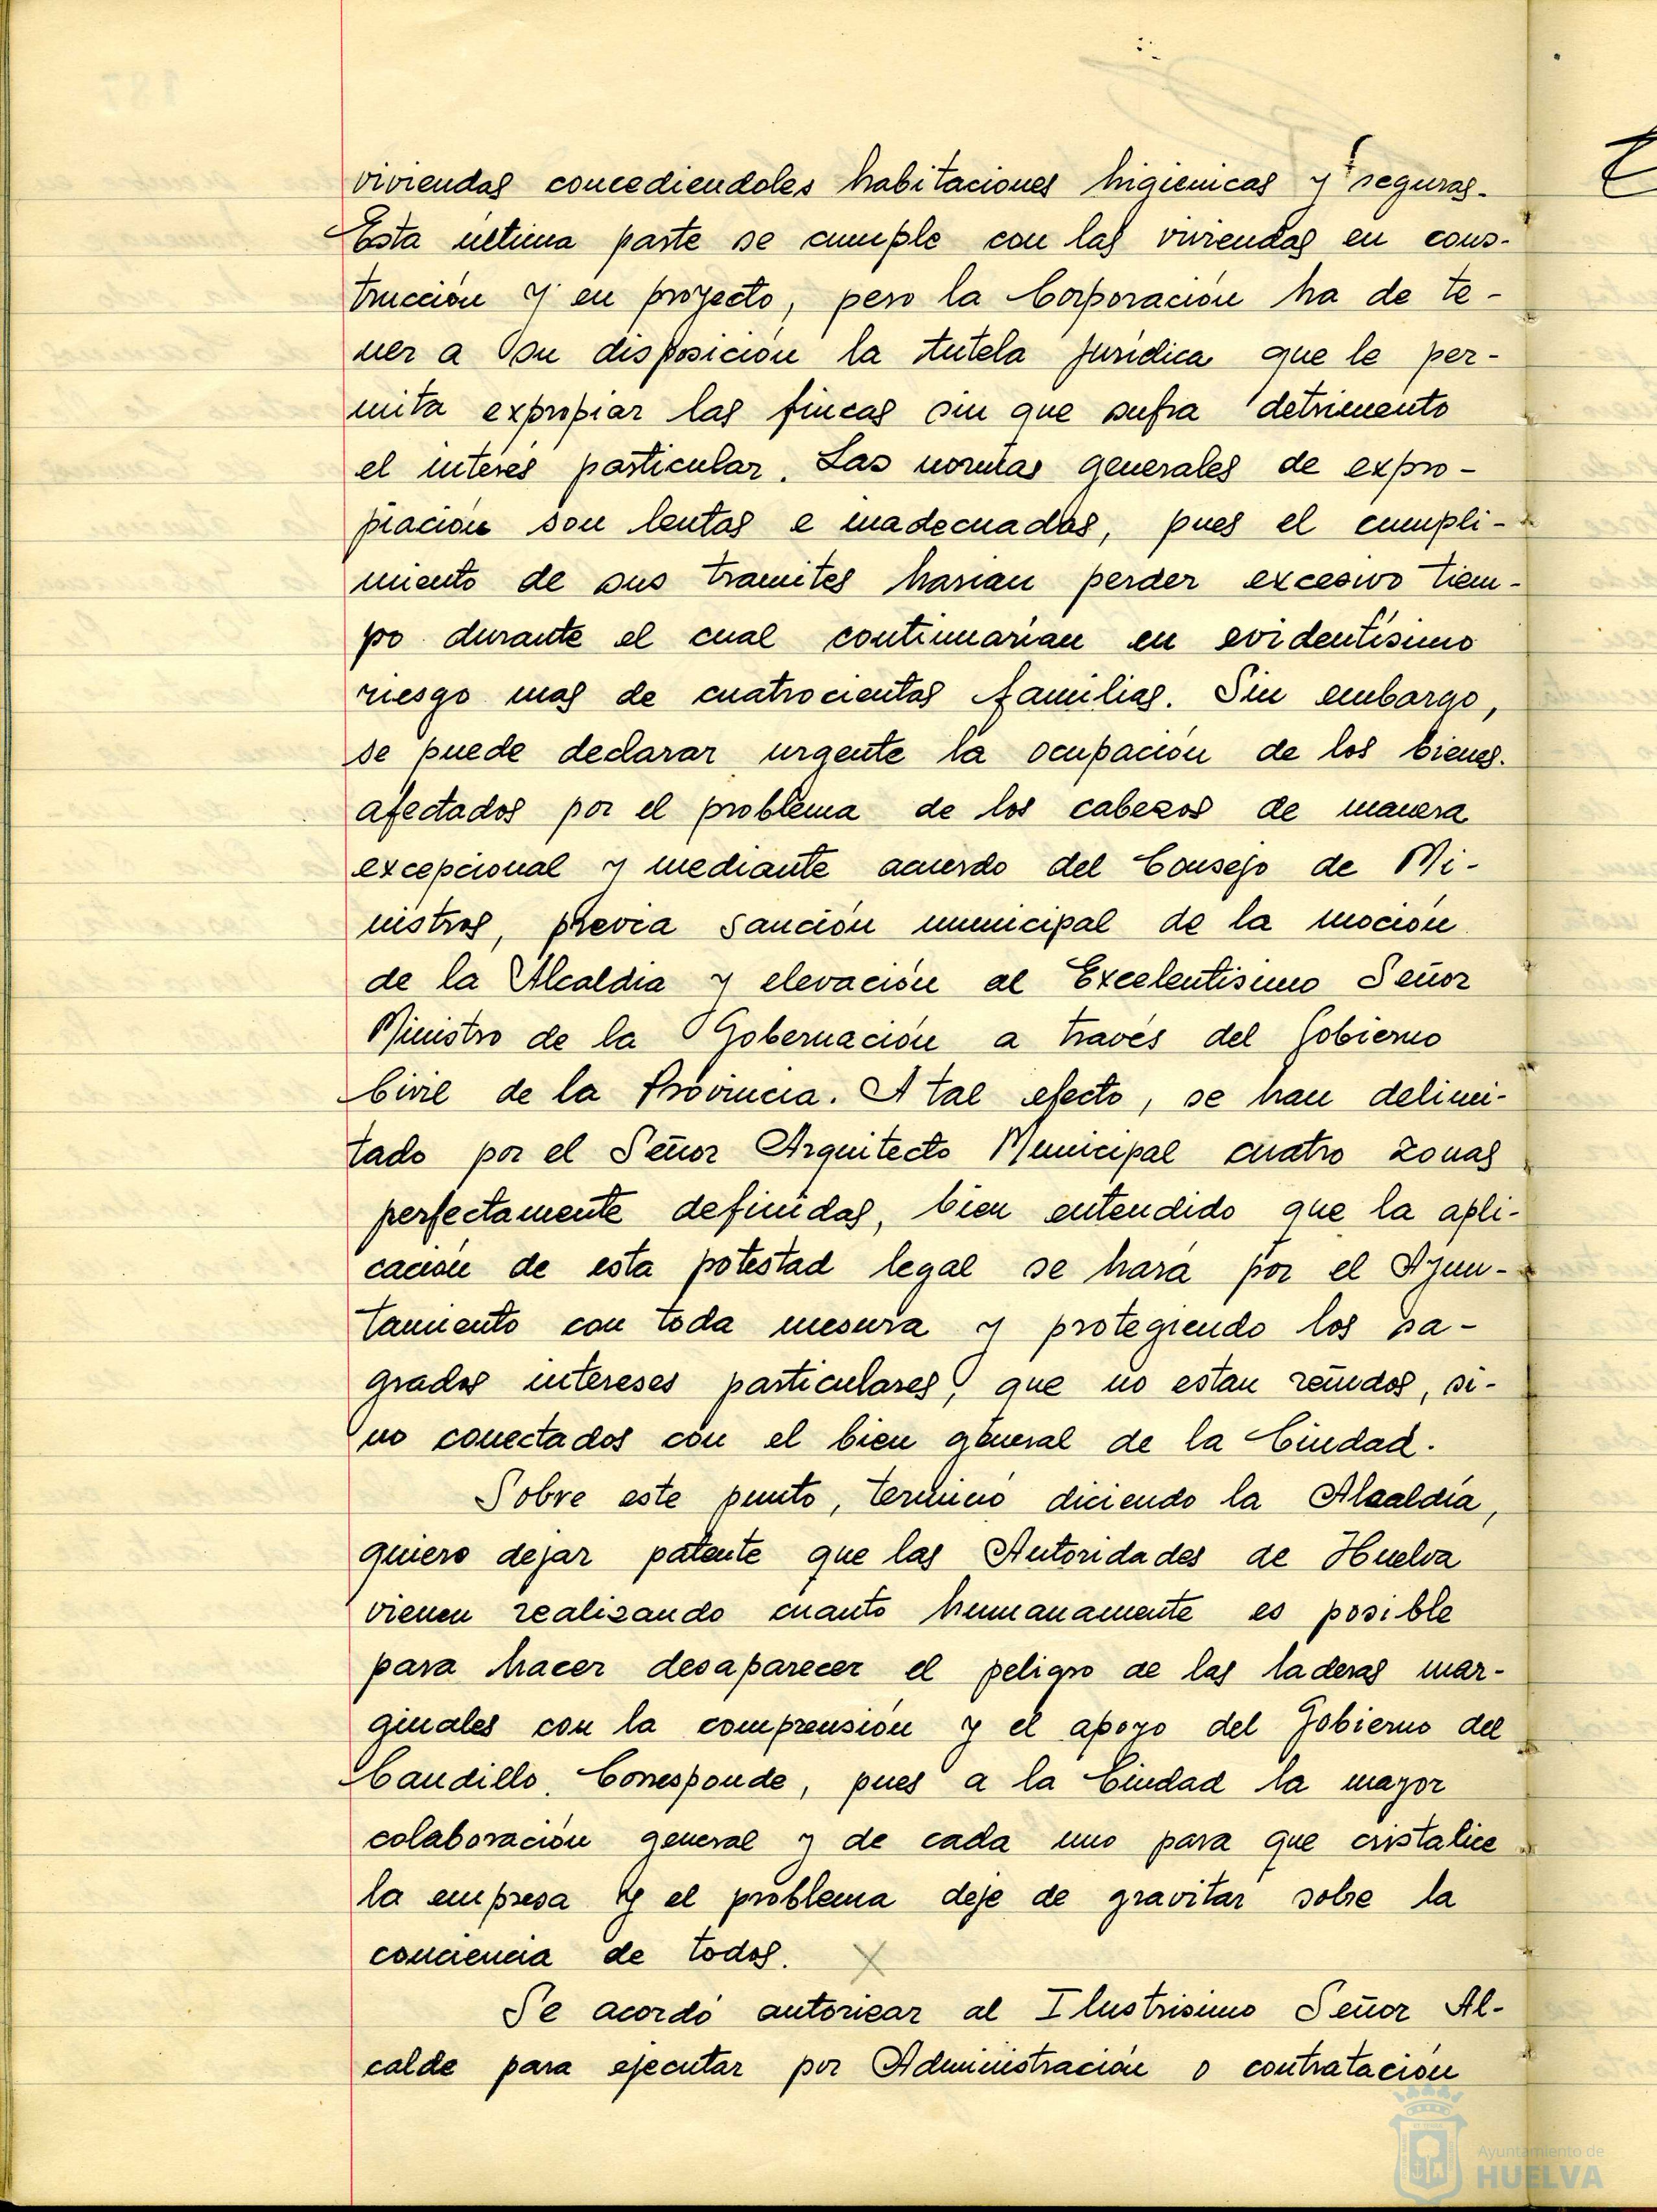 viviendas concediendoles habitaciones higienicas y seguras.
Esta última parte se cumple con las viviendas en cons-
trucción y en proyecto, pero la Corporación ha de te-
ner a su disposición la tutela jurídica que le per-
mita expropiar las fincas sin que sufra detrimento
el interés particular. Las normas generales de expro-
piación son lentas e inadecuadas, pues el cumpli-
miento de sus tramites harian perder excesivo tiem-
po durante el cual continuarían en evidentísimo
riesgo mas de cuatrocientas familias. Sin embargo,
se puede declarar urgente la ocupación de los bienes.
afectados por el problema de los cabezos de manera
excepcional y mediante acuerdo del Consejo de Mi-
nistros, previa sanción municipal de la moción
de la Alcaldia y elevación al Excelentisimo Señor
Ministro de la Gobernación a través del Gobierno
Civil de la Provincia. A tal efecto, se han delimi-
tado por el Señor Arquitecto Municipal cuatro zonas
perfectamente definidas, bien entendido que la apli-
cación de esta potestad legal se hará por el Ayun-
tamiento con toda mesura y protegiendo los sa-
grados intereses particulares, que no estan reñidos, si-
no conectados con el bien general de la Ciudad.
Sobre este punto, terminó diciendo la Alcaldía,
quiero dejar patente que las Autoridades de Huelva
vienen realizando cuanto humanamente es posible
para hacer desaparecer el peligro de las laderas mar-
ginales con la comprensión y el apoyo del Gobierno del
Caudillo. Corresponde, pues a la Ciudad la mayor
colaboración general y de cada uno para que cristalice
la empresa y el problema deje de gravitar sobre la
conciencia de todos.
Se acordó autorizar al Ilustrisimo Señor Al-
calde para ejecutar por Administración o contratación
Ayuntamiento de
HUELVA